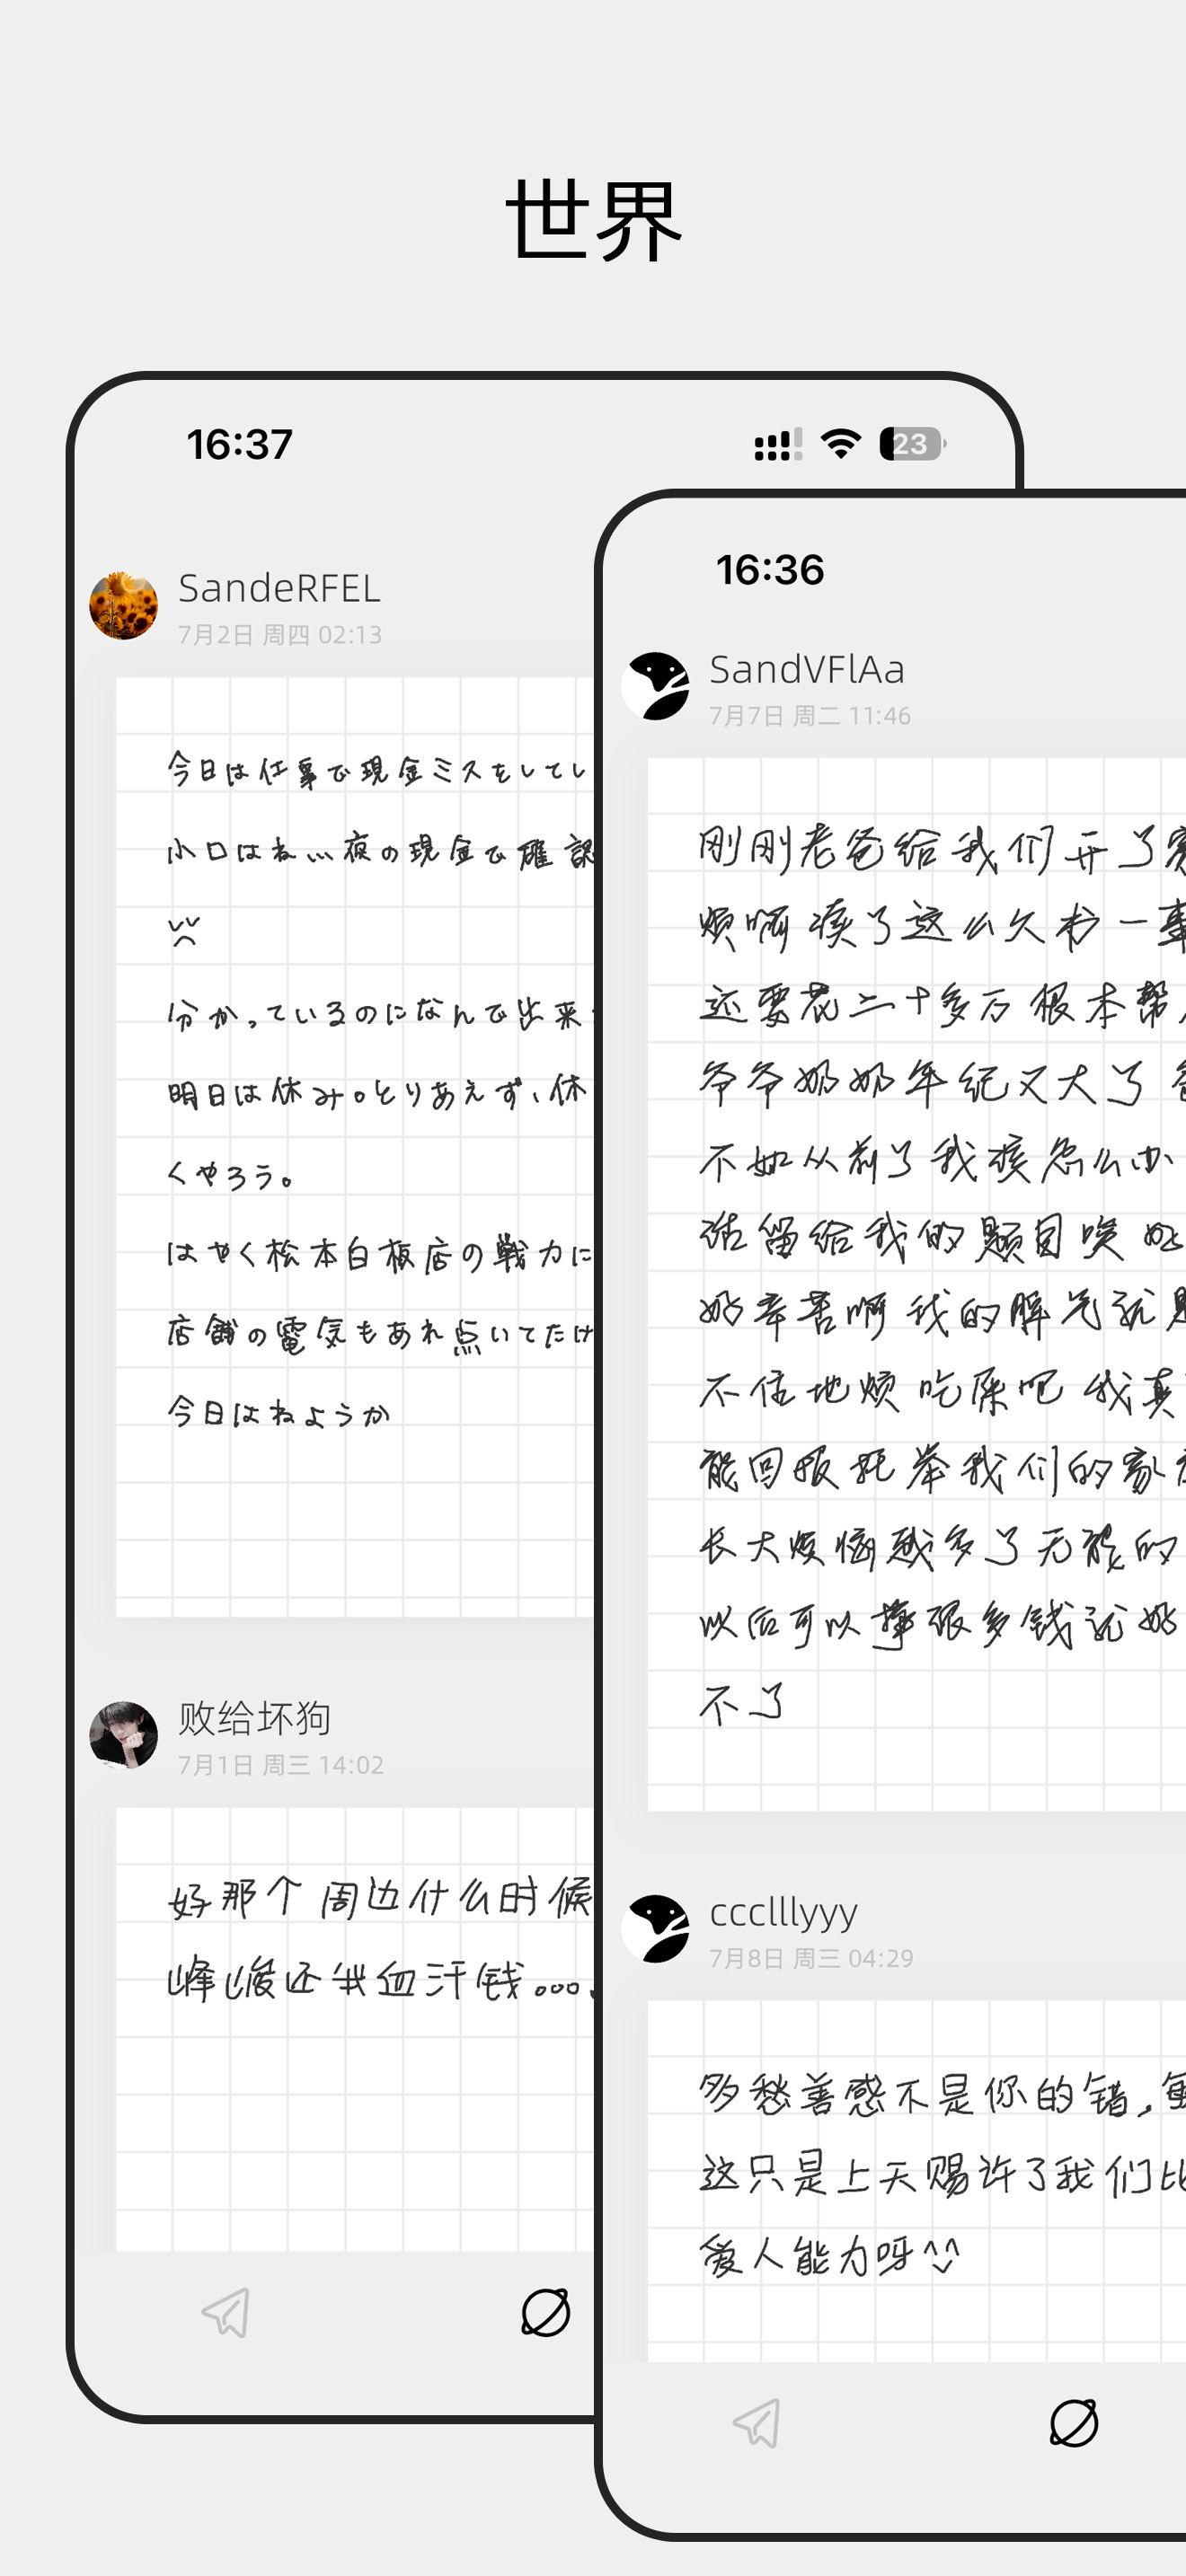 世界
16:37
23
SandeRFEL
7月2日 周四 02:13
今日は仕事で現金ミスをしてし
小口はね、、、夜の現金で確認
分かっているのになんで出来
明日は休み。とりあえず、休
くやろう。
はやく松本白板店の戦力に
店舗の電気もあれ点いてたけ
今日はねようか
败给坏狗
7月1日 周三 14:02
好那个周边什么时候
峰峻还我血汗钱。。。
16:36
SandVFlAa
7月7日 周二 11:46
刚刚老爸给我们开了
烦啊 读了这么久书 一事
还要花二十多万 根本帮
爷爷奶奶年纪又大了
不如从前了 我该怎么办
结留给我的题目唉 好
好辛苦啊 我的脾气就是
不住地烦 吃屎吧 我真
能回报托举我们的家
长大烦恼越多了 无能的
以后可以挣很多钱就好
不了
ccclllyyy
7月8日 周三 04:29
多愁善感不是你的错,
这只是上天赐许了我们比
爱人能力呀^^